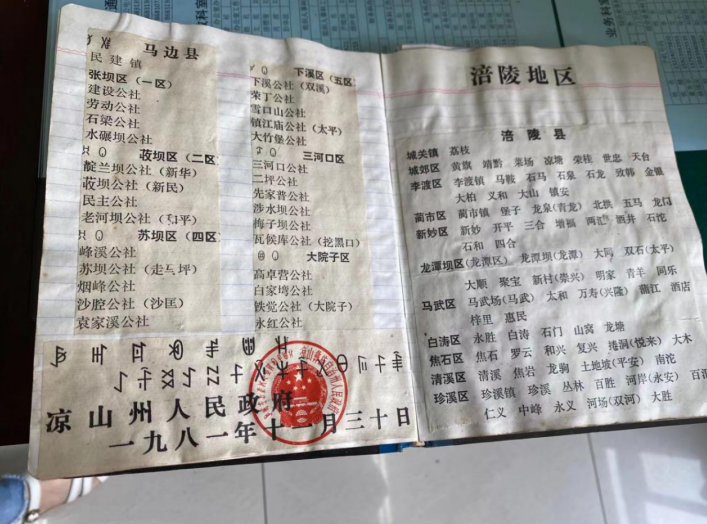 马边县
民建镇
张坝区（一区）
建设公社
劳动公社
石梁公社
水碾坝公社
荍坝区（二区）
靛兰坝公社（新华）
荍坝公社（新民）
民主公社
老河坝公社（和平）
苏坝区（四区）
峰溪公社
苏坝公社（走马坪）
烟峰公社
沙腔公社（沙匡）
袁家溪公社
下溪区（五区）
下溪公社（双溪）
荣丁公社
雪口山公社
镇江庙公社（太平）
大竹堡公社
三河口区
三河口公社
二坪公社
先家普公社
涉水坝公社
梅子坝公社
瓦候库公社（挖黑口）
大院子区
高卓营公社
白家塆公社
铁觉公社（大院子）
永红公社
凉山州人民政府
一九八一年十一月三十日
涪陵地区
涪陵县
城关镇 荔枝
城郊区 黄旗 靖黔 菜场 凉塘 荣桂 世忠 天台
李渡区 李渡镇 马鞍 石马 石泉 石龙 致韩 金银
大柏 义和 大山 镇安
蔺市区 蔺市镇 堡子 龙泉(青龙) 北拱 五马 龙门
新妙区 新妙 开平 三合 增福 两汇 酒井 石沱
石和 四合
龙潭坝区(龙潭区) 龙潭坝(龙潭) 大同 双石(太平)
大顺 聚宝 新村(崇兴) 明家 青羊 同乐
马武区 马武场(马武) 太和 万寿(兴隆) 蒲江 酒店
梓里 惠民
白涛区 永胜 白涛 石门 山窝 龙塘
焦石区 焦石 罗云 和兴 复兴 捲洞(悦来) 大木
清溪区 清溪 焦岩 龙驹 土地坡(平安) 南沱
珍溪区 珍溪镇 珍溪 丛林 百胜 河岸(永安)
仁义 中峰 永义 河场(双河) 大胜